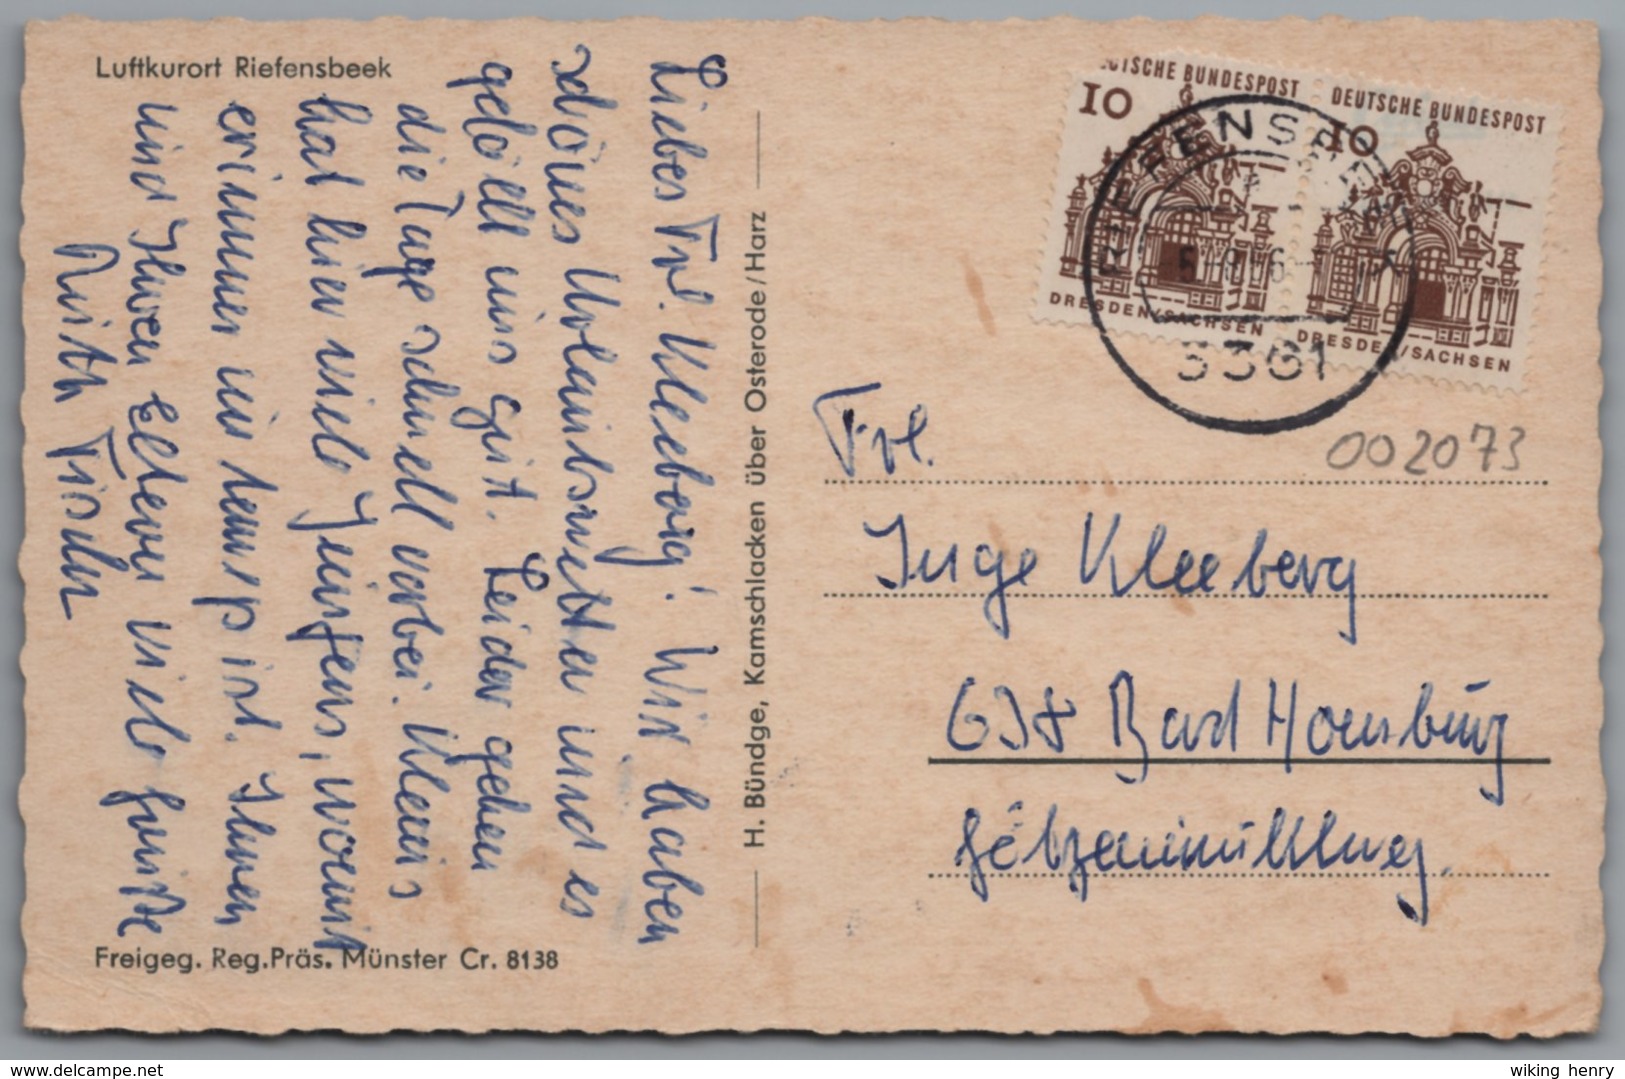 Luftkurort Riefensbeek
Liebes Frl. Kleeberg! Wir haben
schönes Urlaubswetter und es
gefällt uns gut. Leider gehen
die Tage schnell vorbei. Klaus
hat hier viele Jungens, womit
er immer im tennis ist. Ihnen
und Ihren Eltern viele Grüße
Ruth Fischer
Freigeg. Reg.Präs. Münster Cr. 8138
H. Bündge, Kamschlacken über Osterode/Harz
DEUTSCHE BUNDESPOST
10
DRESDEN/SACHSEN
DEUTSCHE BUNDESPOST
10
DRESDEN/SACHSEN
RIEFENSBEEK
3361
002073
Frl.
Inge Kleeberg
638 Bad Homburg
Götzenmühlweg.
delcampe.net
wiking henry